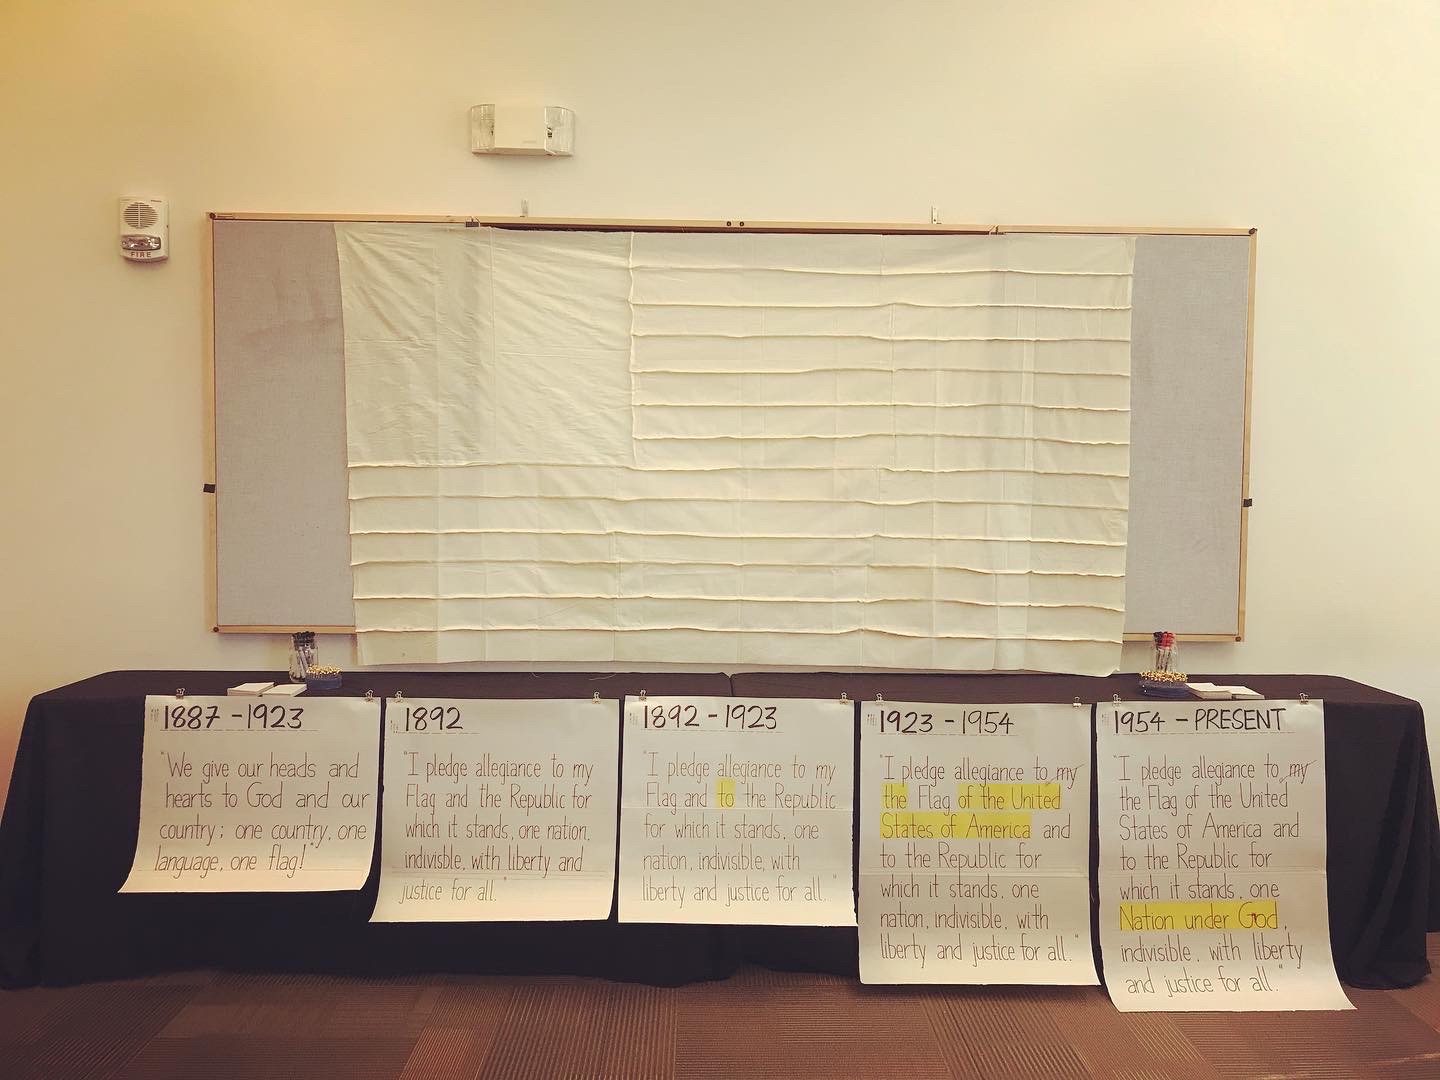 FIRE
1887 - 1923
"We give our heads and
hearts to God and our
country; one country, one
language, one flag!"
1892
"I pledge allegiance to my
Flag and the Republic for
which it stands, one nation,
indivisble, with liberty and
justice for all."
1892 - 1923
"I pledge allegiance to my
Flag and to the Republic
for which it stands, one
nation, indivisible, with
liberty and justice for all."
1923 - 1954
"I pledge allegiance to my
the Flag of the United
States of America and
to the Republic for
which it stands, one
nation, indivisible, with
liberty and justice for all."
1954 - PRESENT
"I pledge allegiance to my
the Flag of the United
States of America and
to the Republic for
which it stands, one
Nation under God,
indivisible, with liberty
and justice for all."